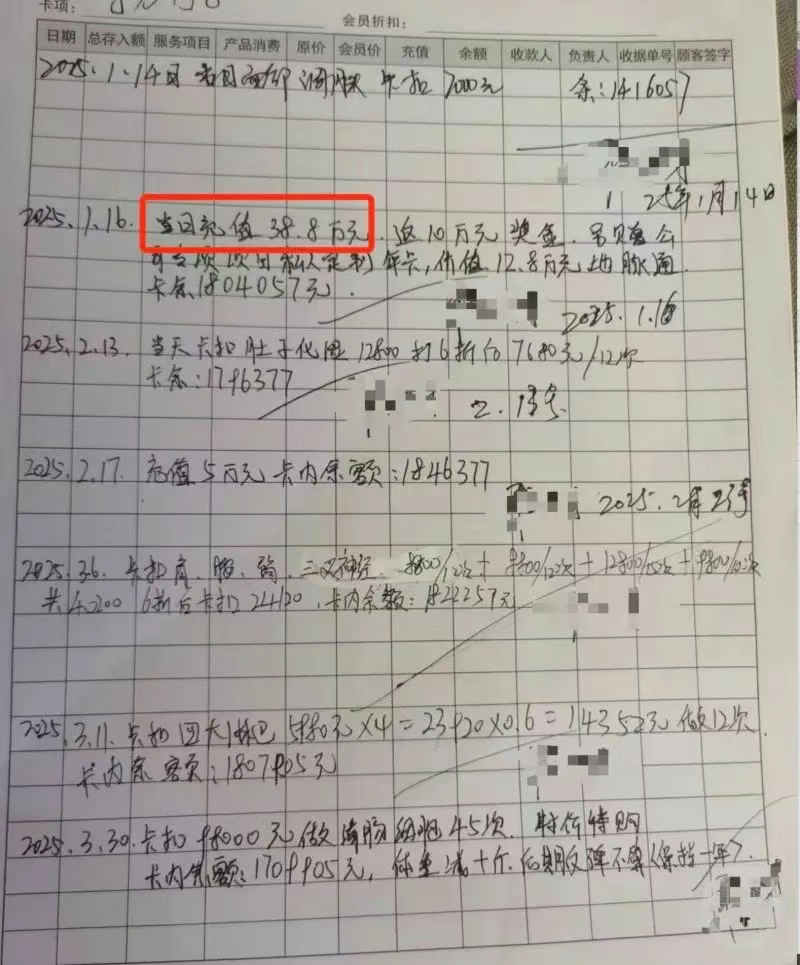 卡项:
会员折扣:
日期 总存入额 服务项目 产品消费 原价 会员价 充值 余额 收款人 负责人 收据单号 顾客签字
2025.1.14日 卡扣 7000元 余:1416057
25年1月14日
2025.1.16. 当日充值38.8万元. 返10万元奖金.
项目私人定制年卡,价值12.8万元地脉通
卡余1804057元.
2025.1.16
2025.2.13. 当天卡扣肚子化湿12800打6折后7680元/12次
卡余:1796377
2.13号
2025.2.17. 充值5万元 卡内余额:1846377
2025.2月
2025.3.6. 卡扣肩、腰、 、三叉神经. 9800/12次+9800/12次+12800/12次+9800/12次
共42200 6折后卡扣24120.卡内余额:1822257元
2025.3.11. 卡扣四大淋巴5980元×4=23920×0.6=14352元 做12次.
卡内余额:1807905元
2025.3.30.卡扣98000元做 45次. 特价特购
卡内余额:1709905元,体重减十斤.后期反弹不算(保持一年).